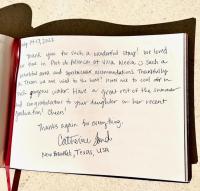 July 14-17, 2023
Thank you for such a wonderful stay! We loved
our time in Port de Pollença at Villa Nerea; such a
beautiful area and spectacular accommodations. Thankfully
the Team was so well to the host! Hotel was to cool off in
such gorgeous water. Have a great rest of the summer
and congratulations to your daughter on her recent
graduation! Cheers!
Thanks again for everything,
Catherine
New Braunfels, Texas, USA